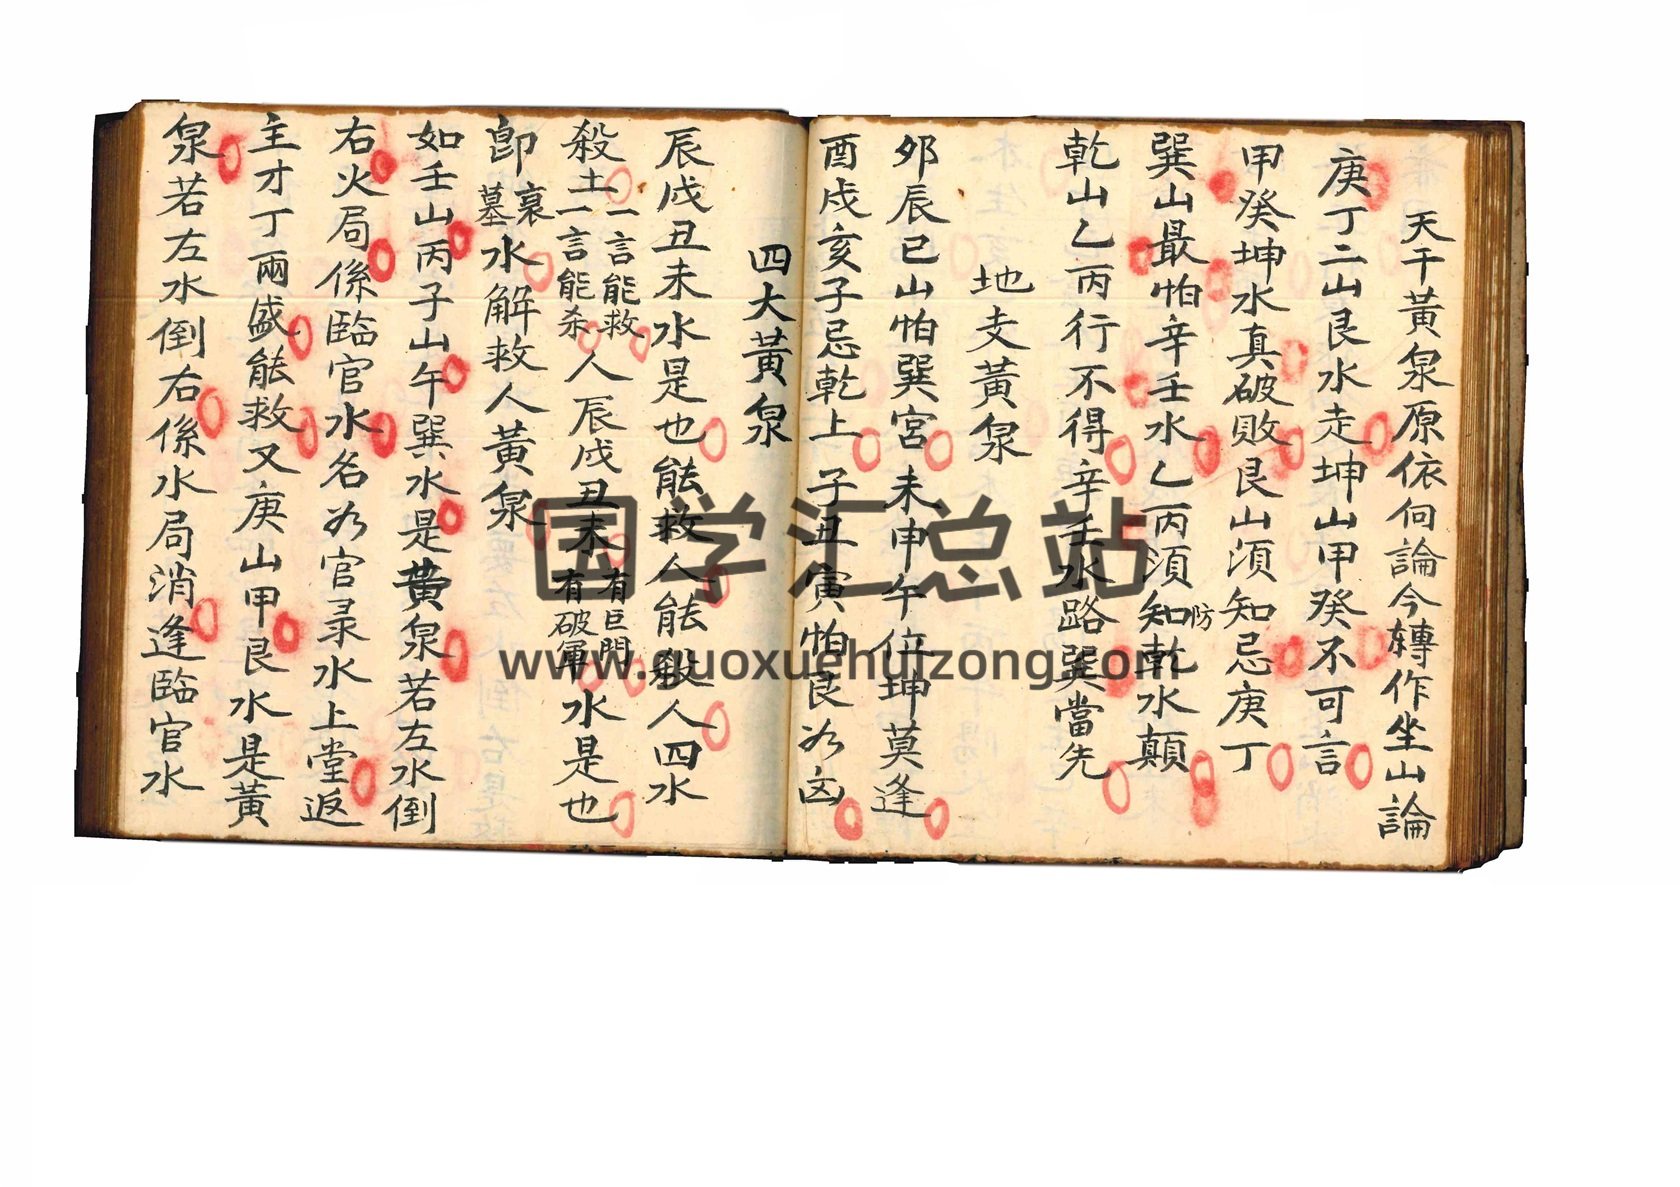 天干黃泉原依向論今轉作坐山論
庚丁二山艮水走坤山甲癸不可言
甲癸坤水真破敗艮山湏知忌庚丁
巽山最怕辛壬水乙丙湏知防乾水顛
乾山乙丙行不得辛壬水路巽當先
地支黃泉
夘辰巳山怕巽宮未申午位坤莫逢
酉戍亥子忌乾上子丑寅怕艮為凶
四大黃泉
辰戍丑未水是也能救人能殺人四水
殺土一言能救一言能杀人辰戍丑未有巨門有破軍水是也
卽衰墓水解救人黃泉
如壬山丙子山午巽水是黃泉若左水倒
右火局係臨官水名為官彔水上堂返
主才丁兩盛能救又庚山甲艮水是黃
泉若左水倒右係水局消逢臨官水
国学汇总站
www.guoxuehuizong.com